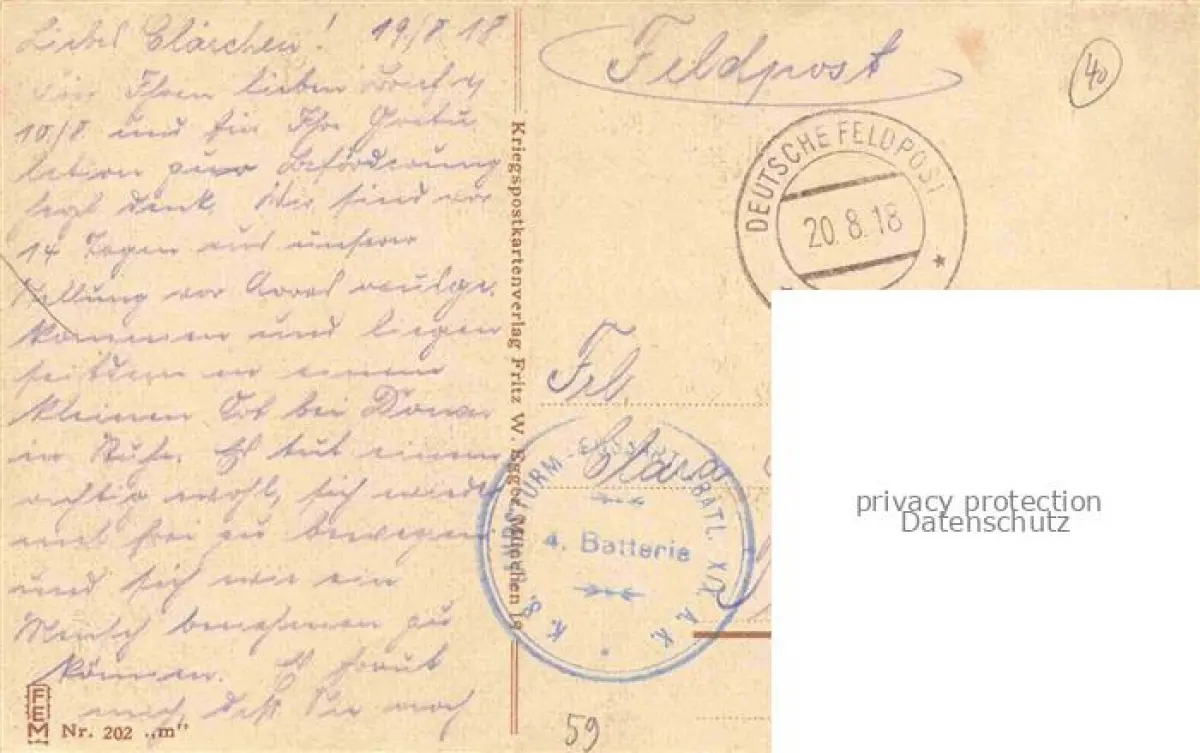 Liebes Clärchen! 19/8 18
Für Ihren lieben Brief v
10/8. und für Ihre Gratu
lation zur Beförderung
Dank. Wir sind vor
14 Tagen aus unserer
Stellung vor Arras rausge-
kommen und liegen
seitdem in einem
kleinen Ort bei Douai
in Ruhe. Es tut einem
richtig wohl, sich wieder
mal frei zu bewegen
und sich wie ein
Mensch benehmen zu
können. Es freut
mich, daß Sie noch
FEM
Nr. 202 „m"
Kriegspostkartenverlag Fritz W. Egger, München 19
Feldpost
40
DEUTSCHE FELDPOST
20.8.18
Frl.
Clara
K. S. LANDSTURM-FUSSART. BATL. XIX A. K.
4. Batterie
59
privacy protection
Datenschutz